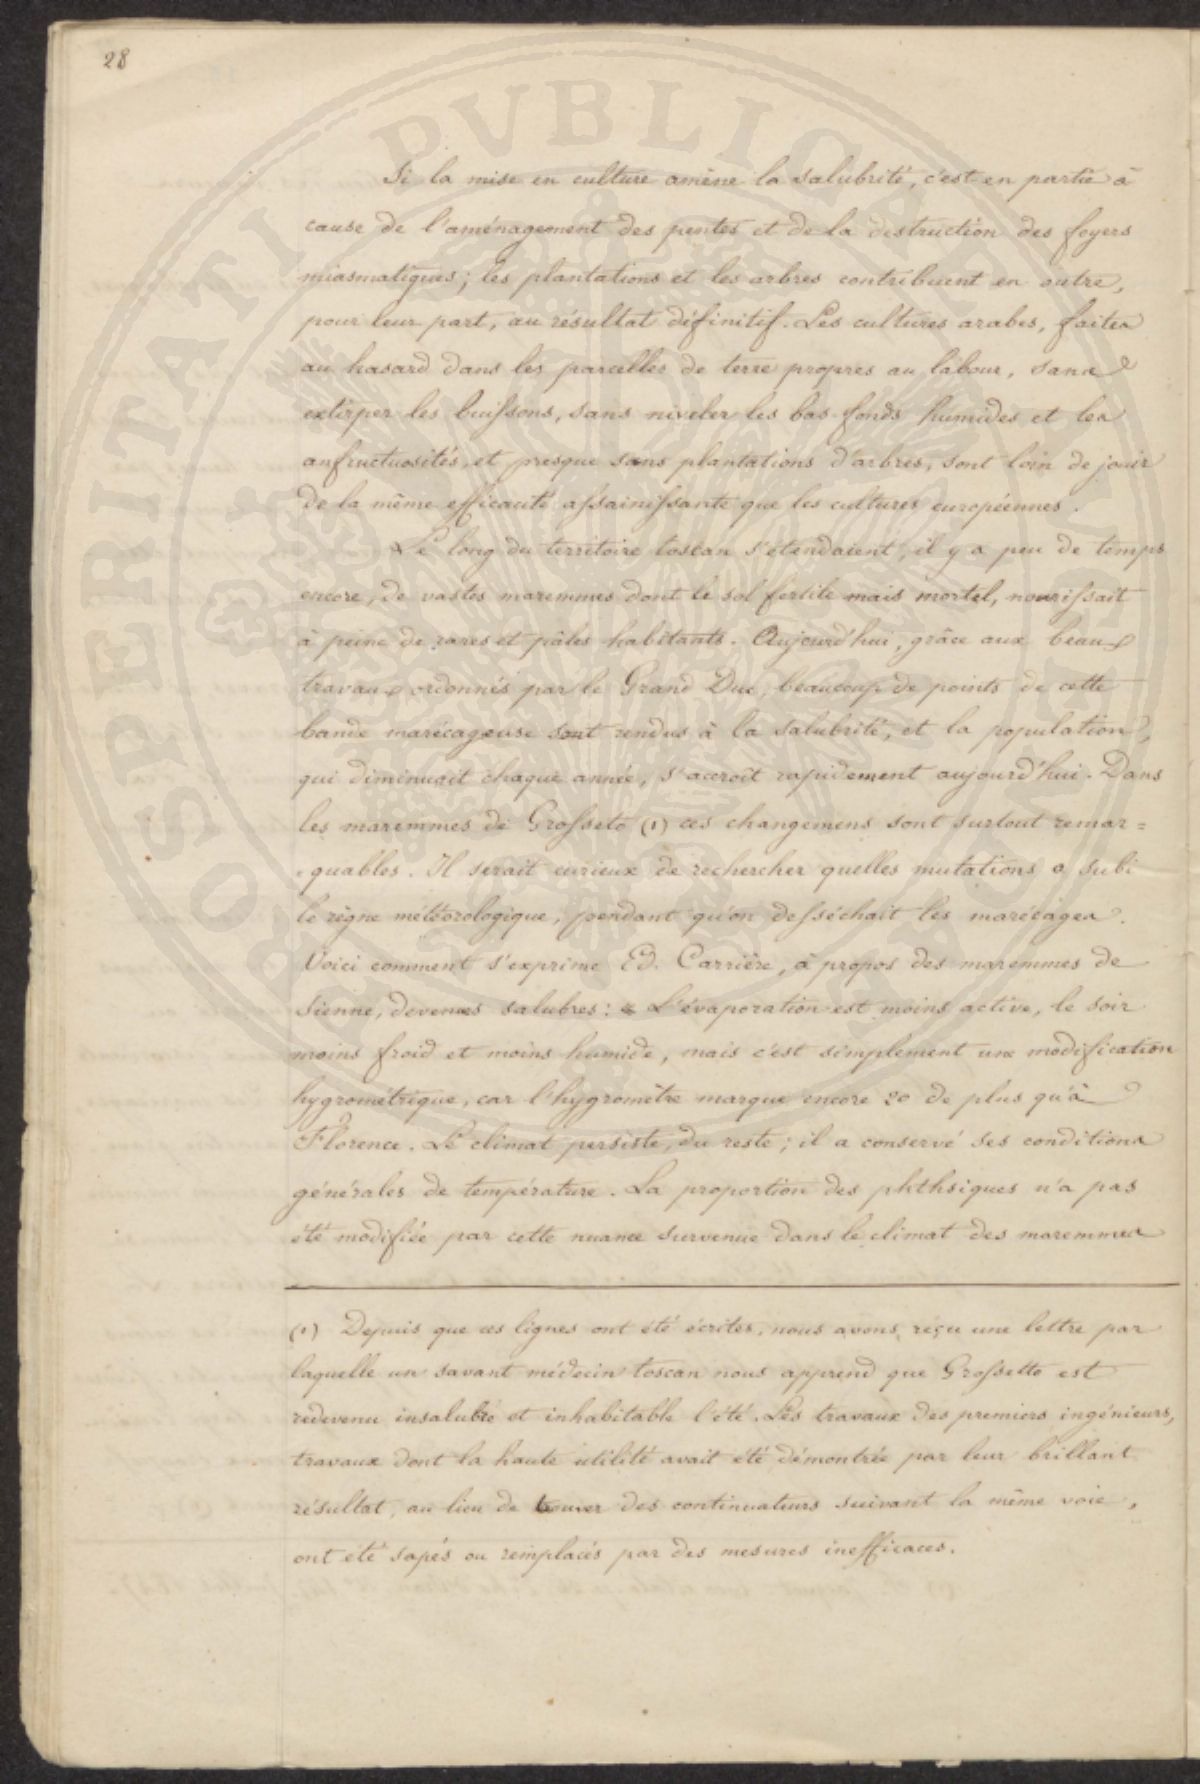 28
Si la mise en culture amène la salubrité, c'est en partie à
cause de l'aménagement des pentes et de la destruction des foyers
miasmatiques; les plantations et les arbres contribuent en outre,
pour leur part, au résultat définitif. Les cultures arabes, faites
au hasard dans les parcelles de terre propres au labour, sans
extirper les buissons, sans niveler les bas-fonds humides et les
anfructuosités, et presque sans plantations d'arbres, sont loin de jouir
de la même efficacité assainissante que les cultures européennes.
Le long du territoire toscan s'étendaient, il y a peu de temps
encore, de vastes maremmes dont le sol fertile mais mortel, nourissait
à peine de rares et pâles habitants. Aujourd'hui, grâce aux beaux
travaux ordonnés par le Grand Duc, beaucoup de points de cette
bande marécageuse sont rendus à la salubrité, et la population,
qui diminuait chaque année, s'accroît rapidement aujourd'hui. Dans
les maremmes de Grosseto (1) ces changemens sont surtout remar=
=quables. Il serait curieux de rechercher quelles mutations a subi
le règne météorologique, pendant qu'on desséchait les marécages.
Voici comment s'exprime Ed. Carrière, à propos des maremmes de
Sienne, devenues salubres: « L'évaporation est moins active, le soir
moins froid et moins humide, mais c'est simplement une modification
hygrométrique, car l'hygromètre marque encore 20 de plus qu'à
Florence. Le climat persiste, du reste; il a conservé ses conditions
générales de température. La proportion des phthsiques n'a pas
été modifiée par cette nuance survenue dans le climat des maremmes
(1) Depuis que ces lignes ont été écrites, nous avons reçu une lettre par
laquelle un savant médecin toscan nous apprend que Grossetto est
redevenu insalubre et inhabitable l'été. Les travaux des premiers ingénieurs,
travaux dont la haute utilité avait été démontrée par leur brillant
résultat, au lieu de trouver des continuateurs suivant la même voie,
ont été sapés ou remplacés par des mesures inefficaces.